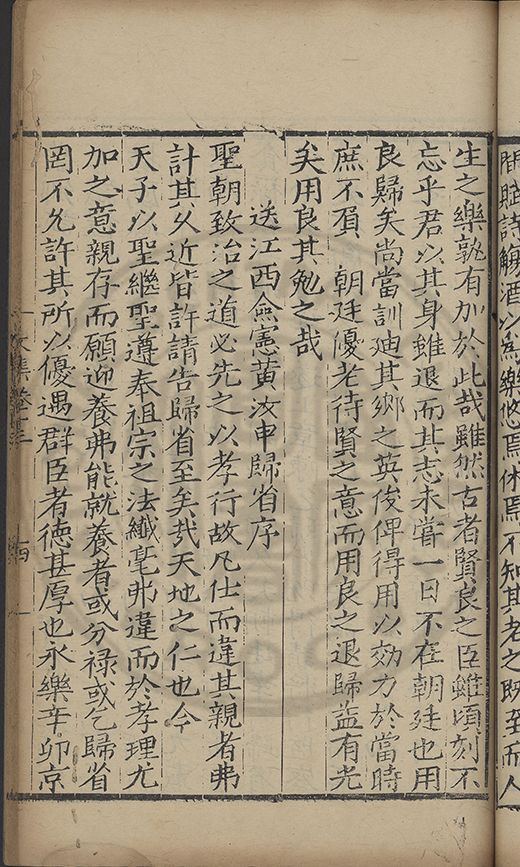 間賦詩觴酒以為樂悠焉休焉不知其老之既至而人
生之樂孰有加於此哉雖然古者賢良之臣雖頃刻不
忘乎君以其身雖退而其志未嘗一日不在朝廷也用
良歸矣尚當訓廸其鄉之英俊俾得用以効力於當時
庶不負 朝廷優老待賢之意而用良之退歸益有光
矣用良其勉之哉
送江西僉憲黄汝申歸省序
聖朝致治之道必先之以孝行故凡仕而違其親者弗
計其乆近皆許請告歸省至矣㢤天地之仁也今
天子以聖繼聖遵奉祖宗之法纖毫弗違而於孝理尤
加之意親存而願迎養弗能就養者或分禄或乞歸省
罔不允許其所以優遇群臣者徳甚厚也永樂辛卯京
文集卷 十四